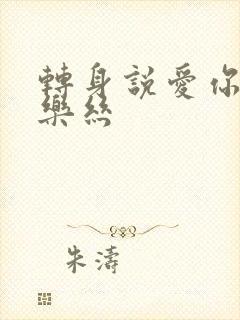 轉身說愛你
樂絲
朱濤